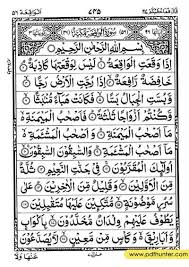 الواقعة ٥٦
بِسْمِ اللهِ الرَّحْمٰنِ الرَّحِيْمِ
اِذَا وَقَعَتِ الْوَاقِعَةُ ۝ لَيْسَ لِوَقْعَتِهَا كَاذِبَةٌ ۝
خَافِضَةٌ رَّافِعَةٌ ۝ اِذَا رُجَّتِ الْاَرْضُ رَجًّا ۝
وَّبُسَّتِ الْجِبَالُ بَسًّا ۝ فَكَانَتْ هَبَآءً مُّنْۢبَثًّا ۝
وَّكُنْتُمْ اَزْوَاجًا ثَلٰثَةً ۝ فَاَصْحٰبُ الْمَيْمَنَةِ
مَآ اَصْحٰبُ الْمَيْمَنَةِ ۝ وَاَصْحٰبُ الْمَشْـَٔمَةِ
مَآ اَصْحٰبُ الْمَشْـَٔمَةِ ۝ وَالسّٰبِقُوْنَ السّٰبِقُوْنَ ۝
اُولٰٓئِكَ الْمُقَرَّبُوْنَ ۝ فِيْ جَنّٰتِ النَّعِيْمِ ۝ ثُلَّةٌ مِّنَ
الْاَوَّلِيْنَ ۝ وَقَلِيْلٌ مِّنَ الْاٰخِرِيْنَ ۝ عَلٰى سُرُرٍ
مَّوْضُوْنَةٍ ۝ مُّتَّكِـِٕيْنَ عَلَيْهَا مُتَقٰبِلِيْنَ ۝
يَطُوْفُ عَلَيْهِمْ وِلْدَانٌ مُّخَلَّدُوْنَ ۝ بِاَكْوَابٍ
وَّاَبَارِيْقَ ۙ وَكَاْسٍ مِّنْ مَّعِيْنٍ ۝ لَّا يُصَدَّعُوْنَ
عَنْهَا وَلَا
www.pdfhunter.com